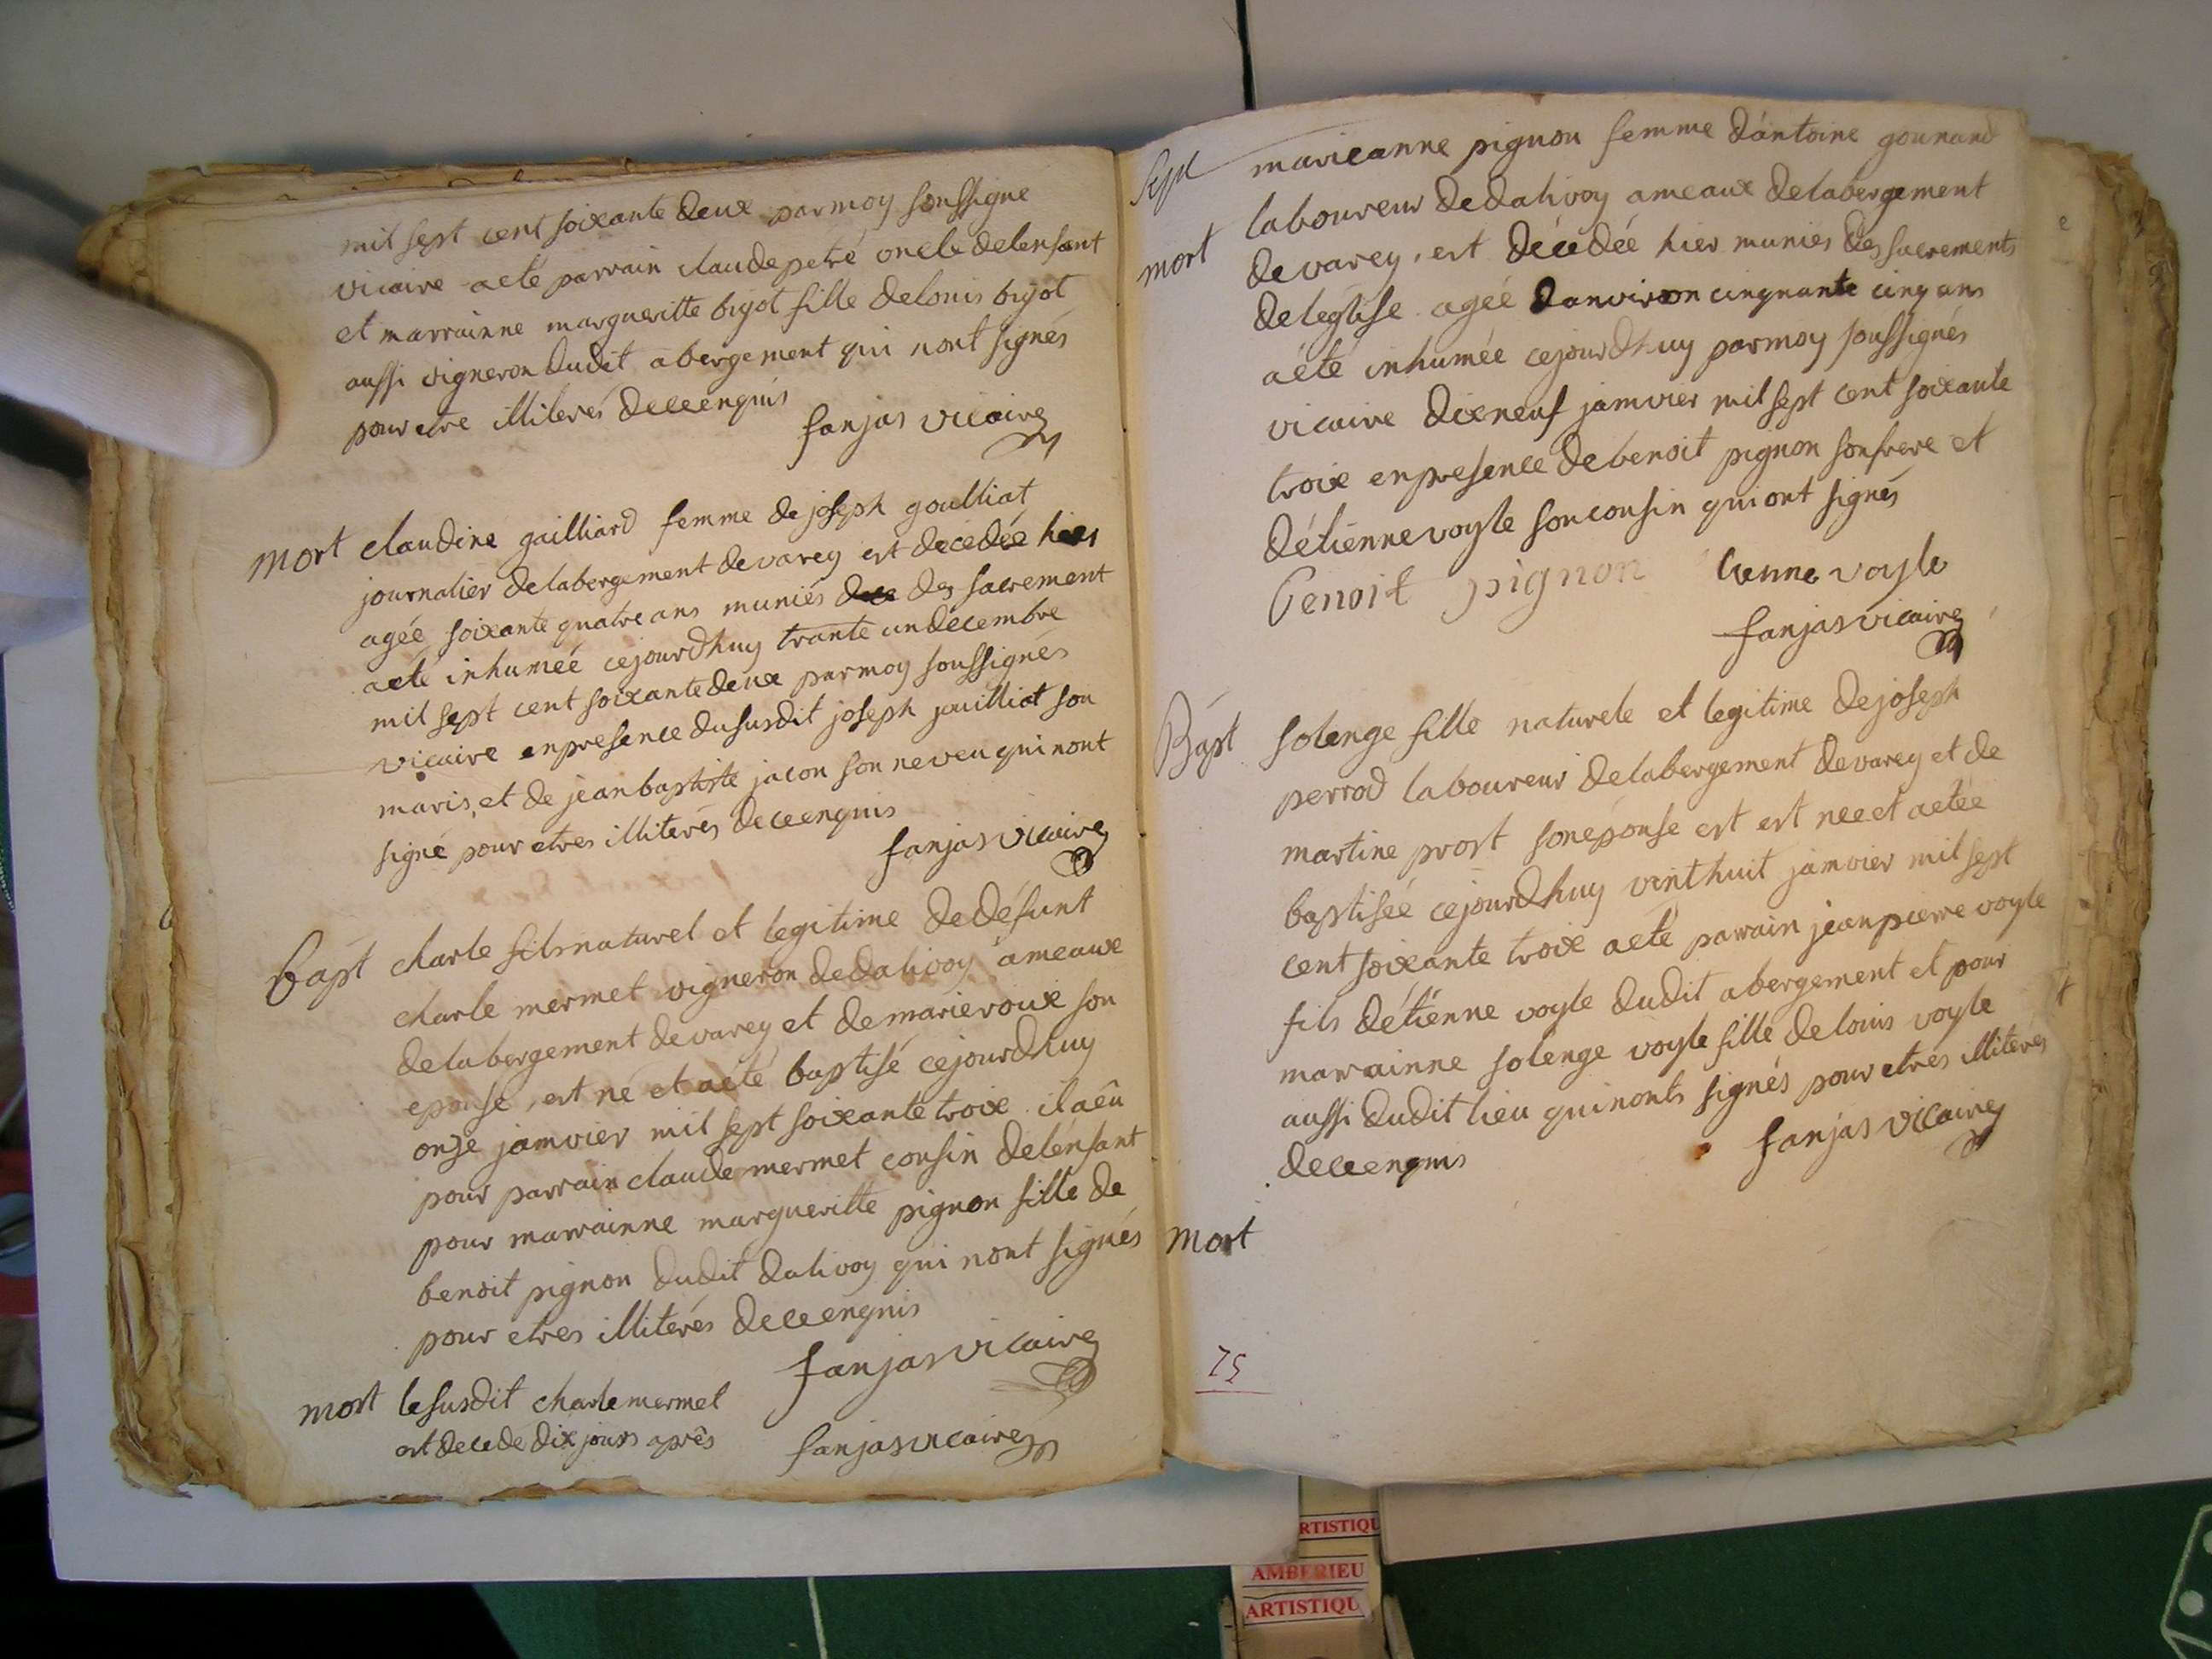 mil sept cent soixante deux par moy soussigne
vicaire aeté parrain claude petré oncle delenfant
et marrainne margueritte bigot fille delouis bigot
aussi vigneron dudit abergement qui nont signés
pour etre illiterés deceenquis
fanjas vicaire
mort claudine gailliard femme de joseph goulliat
journalier delabergement devarey est decedée hier
agée soixante quatre ans muniés des sacrement
aeté inhumée cejourdhuy trante un décembre
mil sept cent soixante deux par moy soussignés
vicaire enpresence dususdit joseph jouilliat son
maris, et de jeanbaptiste jacon son neveu qui nont
signé pour etres illiterés deceenquis
fanjas vicaire
bapt charle fils naturel et legitime dedéfunt
charle mermet vigneron dedalivoy ameaux
delabergement devarey et demarie roux son
epouse, est né et aeté baptisé cejourdhuy
onze jamvier mil sept soixante troix il aêu
pour parrain claude mermet cousin delénfant
pour marrainne margueritte pignon fille de
benoit pignon dudit dalivoy qui nont signés
pour etres illiterés deceenquis
fanjas vicaire
mort lesusdit charle mermet
est decedé dix jours aprês
fanjas vicaire
Sept marieanne pignon femme dántoine gounand
laboureur dedalivoy ameaux delabergement
mort devarey, est décedée hier muniés des sacrements
deleglise agée danviron cinquante cinq ans
aété inhumée cejourdhuy parmoy soussignés
vicaire dixneuf jamvier mil sept cent soixante
troix enpresence debenoit pignon sonfrere et
détienne voyle soncousin qui ont signés
Benoit pignon tienne voyle
fanjas vicaire
Bapt solenge fille naturele et legitime dejoseph
perrod laboureur delabergement devarey et de
martine prost sonepouse est est nee et aetée
baptisée cejourdhuy vint huit jamvier mil sept
cent soixante troix aeté parrain jeanpierre voyle
fils détienne voyle dudit abergement et pour
marrainne solenge voyle fille delouis voyle
aussi dudit lieu quinonts signés pour etres illiterés
deceenquis
fanjas vicaire
mort
75
RTISTIQU
AMBERIEU
ARTISTIQU